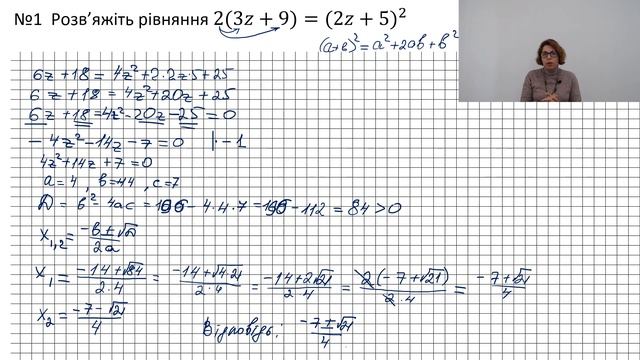 №1 Розв’яжіть рівняння 2(3z + 9) = (2z + 5)²
(a+b)² = a²+2ab+b²
6z +18 = 4z²+2·2z·5+25
6z +18 = 4z²+20z+25
6z +18 -4z²-20z-25=0
-4z²-14z-7=0 |·-1
4z²+14z+7=0
a=4, b=14, c=7
D = b²-4ac = 196-4·4·7=196-112=84>0
x₁,₂ = (-b±√D)/2a
x₁ = (-14+√84)/(2·4) = (-14+√(4·21))/(2·4) = (-14+2√21)/(2·4) = (2(-7+√21))/(2·4) = (-7+√21)/4
x₂ = (-7-√21)/4
Відповідь: (-7±√21)/4